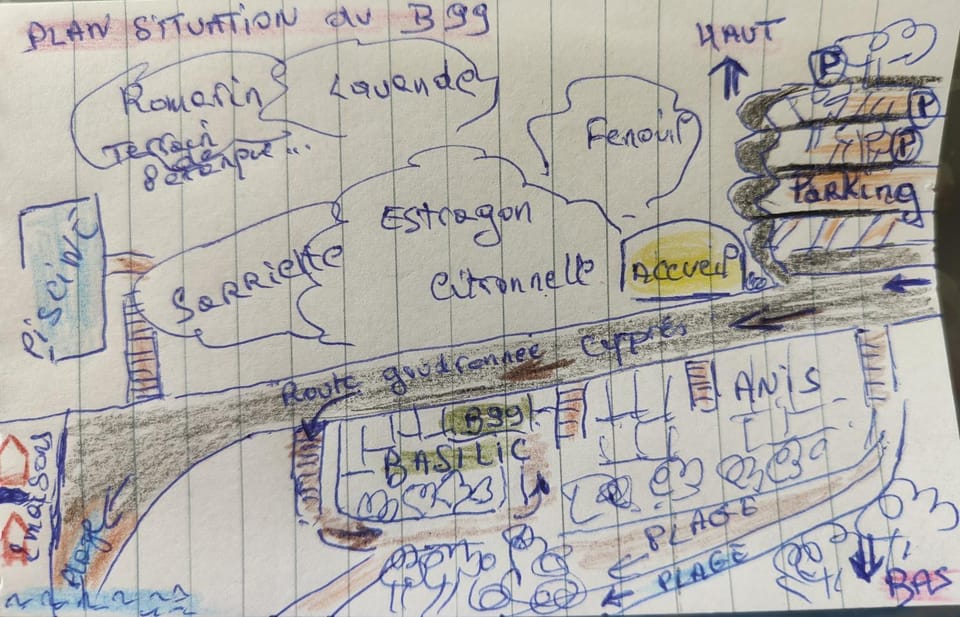 PLAN SITUATION du B99
HAUT
Romarin
Lavande
Terrain
de
Pétanque...
Fenouil
P
P
P
Parking
Piscine
Sarriette
Estragon
Citronnelle
Accueil
Route goudronnée Cyprés
B99
BASILIC
ANIS
maisons
Plage
PLAGE
PLAGE
BAS